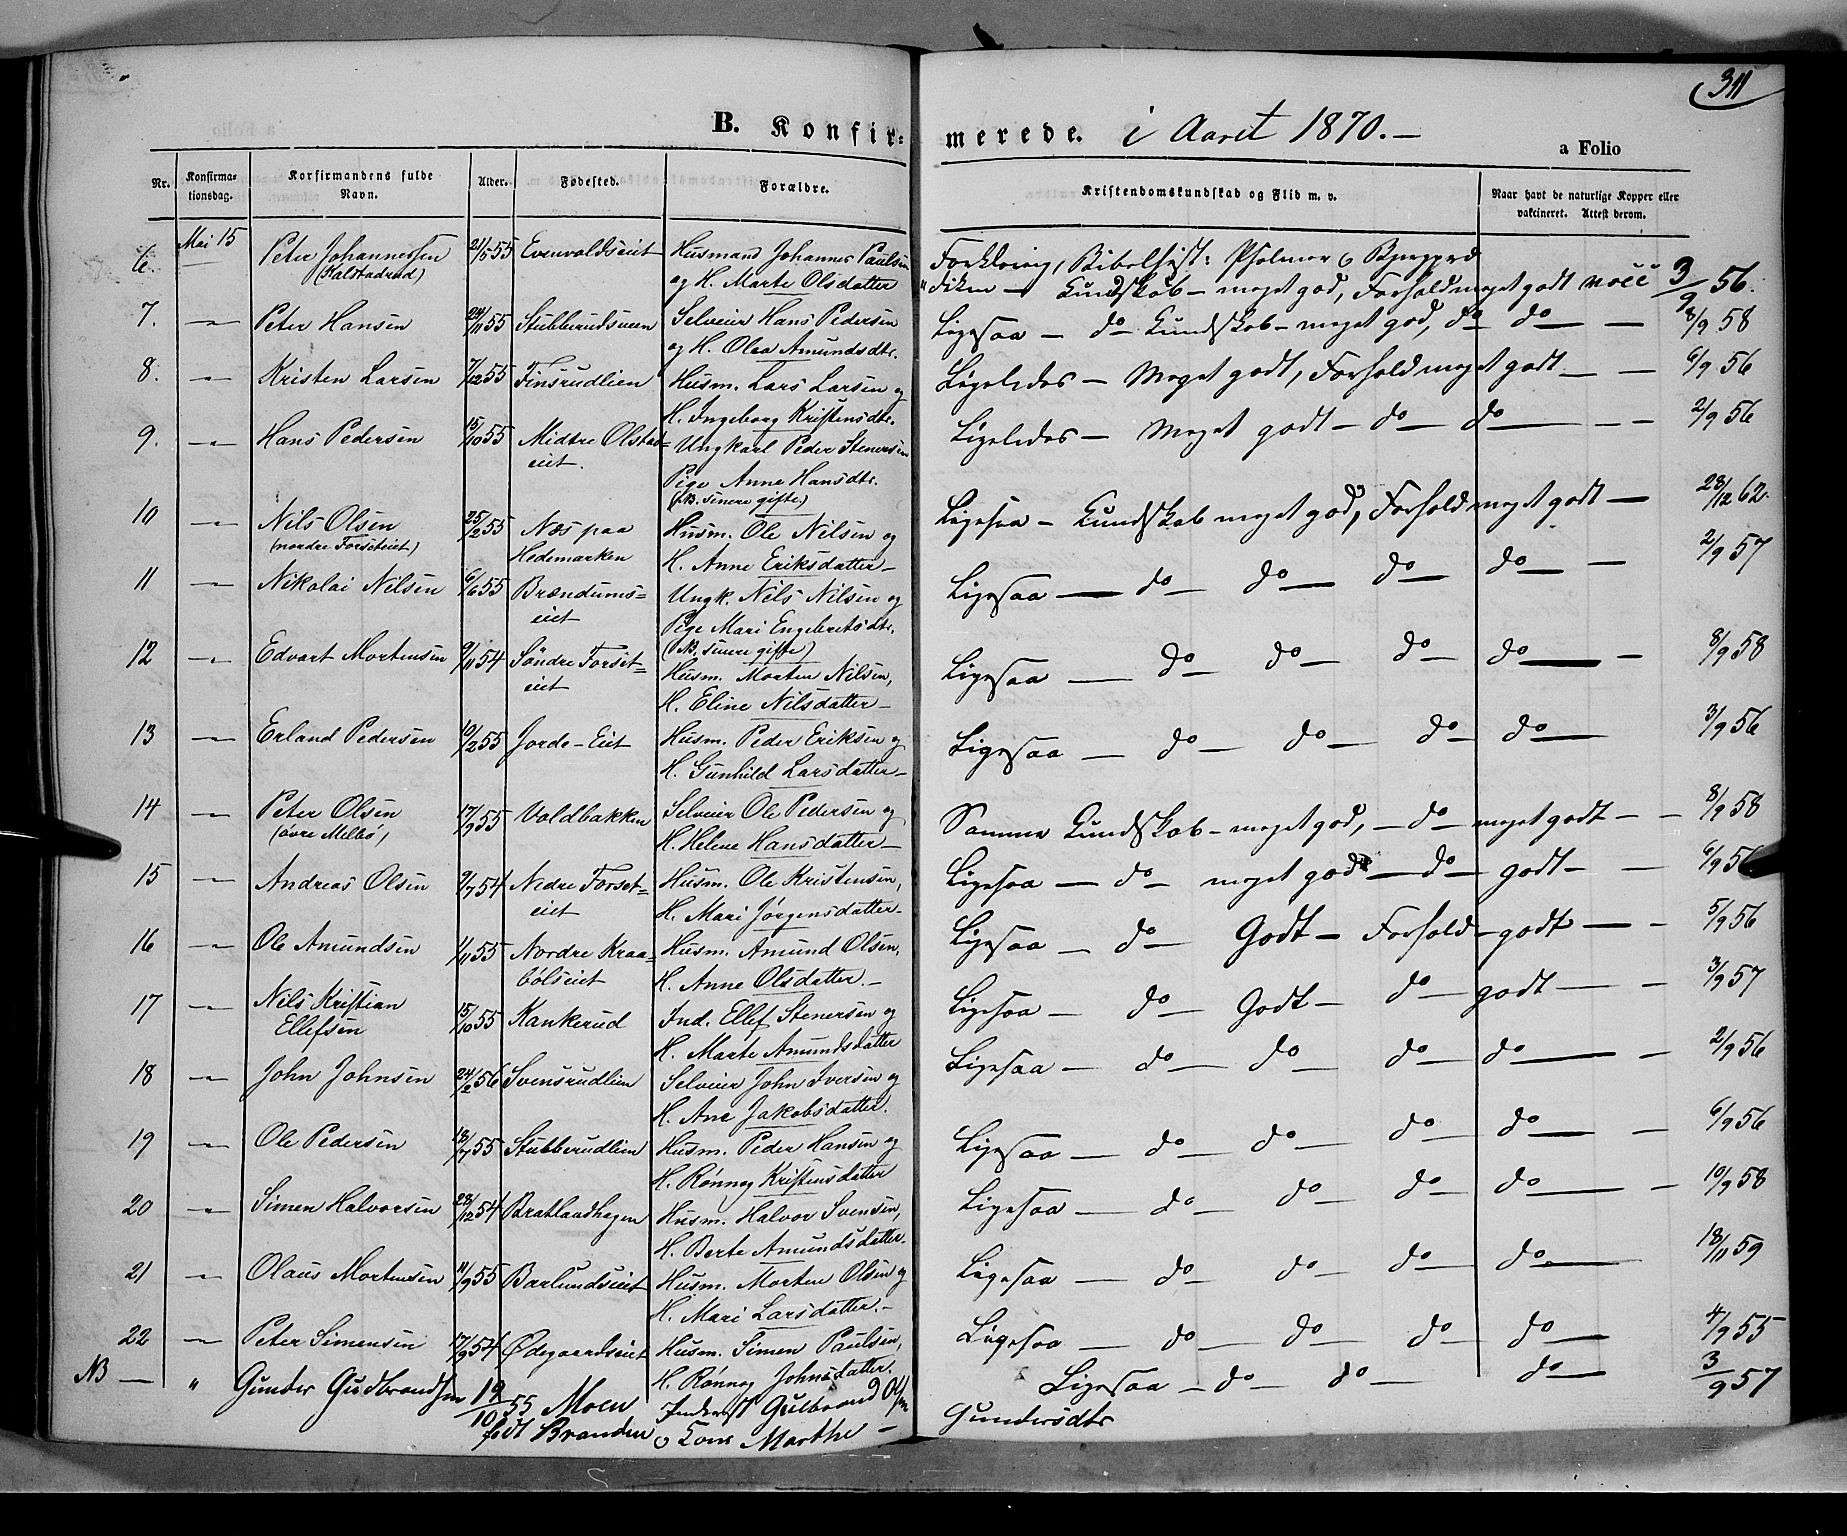 311
B. Konfir=merede. i Aaret 1870.—
a Folio
Nr. Konfirmationsdag. Konfirmandens fulde Navn. Alder. Fødested. Forældre. Kristendomskundskab og Flid m. v. Naar havt de naturlige Kopper eller vakcineret. Attest derom.
6. Mai 15 Peter Johannessen 21/5 55 Evenvoldseiet Husmand Johannes Paulsen Forklaring, Bibelhist: Psalmer
(Kalstadrud) og H. Marte Olsdatter Kundskab – meget god, Forhold meget godt vacc 3/9 56.
7. — Peter Hansen 24/11 55 Stubberudsveen Selveier Hans Pedersen Ligesaa — do Kundskab – meget god, do do — 8/9 58
og H. Olea Amundsdtr.
8. — Kristen Larsen 7/12 55 Finsrudlien Husm. Lars Larsen og Ligeledes — Meget godt, Forhold meget godt — — 6/9 56
H. Ingeborg Kristensdtr.
9. — Hans Pedersen 15/10 55 Midtre Olstad= Ungkarl Peder Stenersen Ligeledes — Meget godt — do — do — — 2/9 56
eiet. Pige Anne Hansdtr.
(NB. senere gifte)
10 — Nils Olsen 25/2 55 Næs paa Husm. Ole Nilsen og Ligesaa — Kundskab meget god, Forhold meget godt — 28/12 62.
(nordre Forseteiet) Hedemarken H. Anne Eriksdatter —
11 — Nikolai Nilsen 6/6 55 Brændums= Ungk. Nils Nilsen og Ligesaa — do — do — do — do — — 2/9 57
eiet Pige Mari Engebretsdtr.
(NB. senere gifte)
12 — Edvart Mortensen 9/11 54 Søndre Forset= Husm. Morten Nilsen, Ligesaa — do do — do — do — — 8/9 58
eiet H. Eline Nilsdatter —
13 — Erland Pedersen 10/2 55 Jorde-Eiet Husm. Peder Eriksen og Ligesaa — do — do — do — do — 3/9 56
H. Gunhild Larsdatter —
14 — Peter Olsen 17/9 55 Voldbakken Selveier Ole Pedersen og Samme Kundskab – meget god, — do — meget godt — — 8/9 58
(øvre Melbø) H. Helene Hansdatter —
15 — Andreas Olsen 9/7 54 Nedre Forset= Husm. Ole Kristensen, Ligesaa — do — meget god — do — godt — — 6/9 56
eiet H. Mari Jørgensdatter —
16 — Ole Amundsen 1/11 55 Nordre Kraa= Husm. Amund Olsen, Ligesaa — do — Godt — Forhold – godt — — 5/9 56
bølseiet H. Anne Olsdatter. —
17 — Nils Kristian 15/10 55 Kankerud Ind. Ellef Stenersen og Ligesaa — do — Godt — do — godt — — 3/9 57
Ellefsen H. Marte Amundsdatter
18 — John Johnsen 24/2 56 Svensrudlien Selveier John Iversen og Ligesaa — do — do — do — do — — 2/9 56
H. Ane Jakobsdatter.
19 — Ole Pedersen 18/7 55 Stubberudlien Husm. Peder Hansen og Ligesaa — do — do — do — do — — 6/9 56
H. Rønnog Kristensdatter
20 — Simen Halvorsen 28/12 54 Bratlandhagen Husm. Halvor Svensen, Ligesaa — do — do — do — do — — 10/9 58
H. Berte Amundsdatter.
21 — Olaus Mortensen 11/9 55 Baelundseiet Husm. Morten Olsen og Ligesaa — do — do — do — do — 18/11 59
H. Mari Larsdatter. —
22 — Peter Simensen 17/9 54 Ødegaardseiet Husm. Simen Paulsen, Ligesaa — do — do — do — do — 4/9 55
H. Rønnog Johnsdatter
NB — " Gunder Gudbrandsen 19/10 55 Moen Inderst Gulbrand Olsen Ligesaa — do — do — do — 3/9 57
født Branden Kone Marthe — Gundersdtr